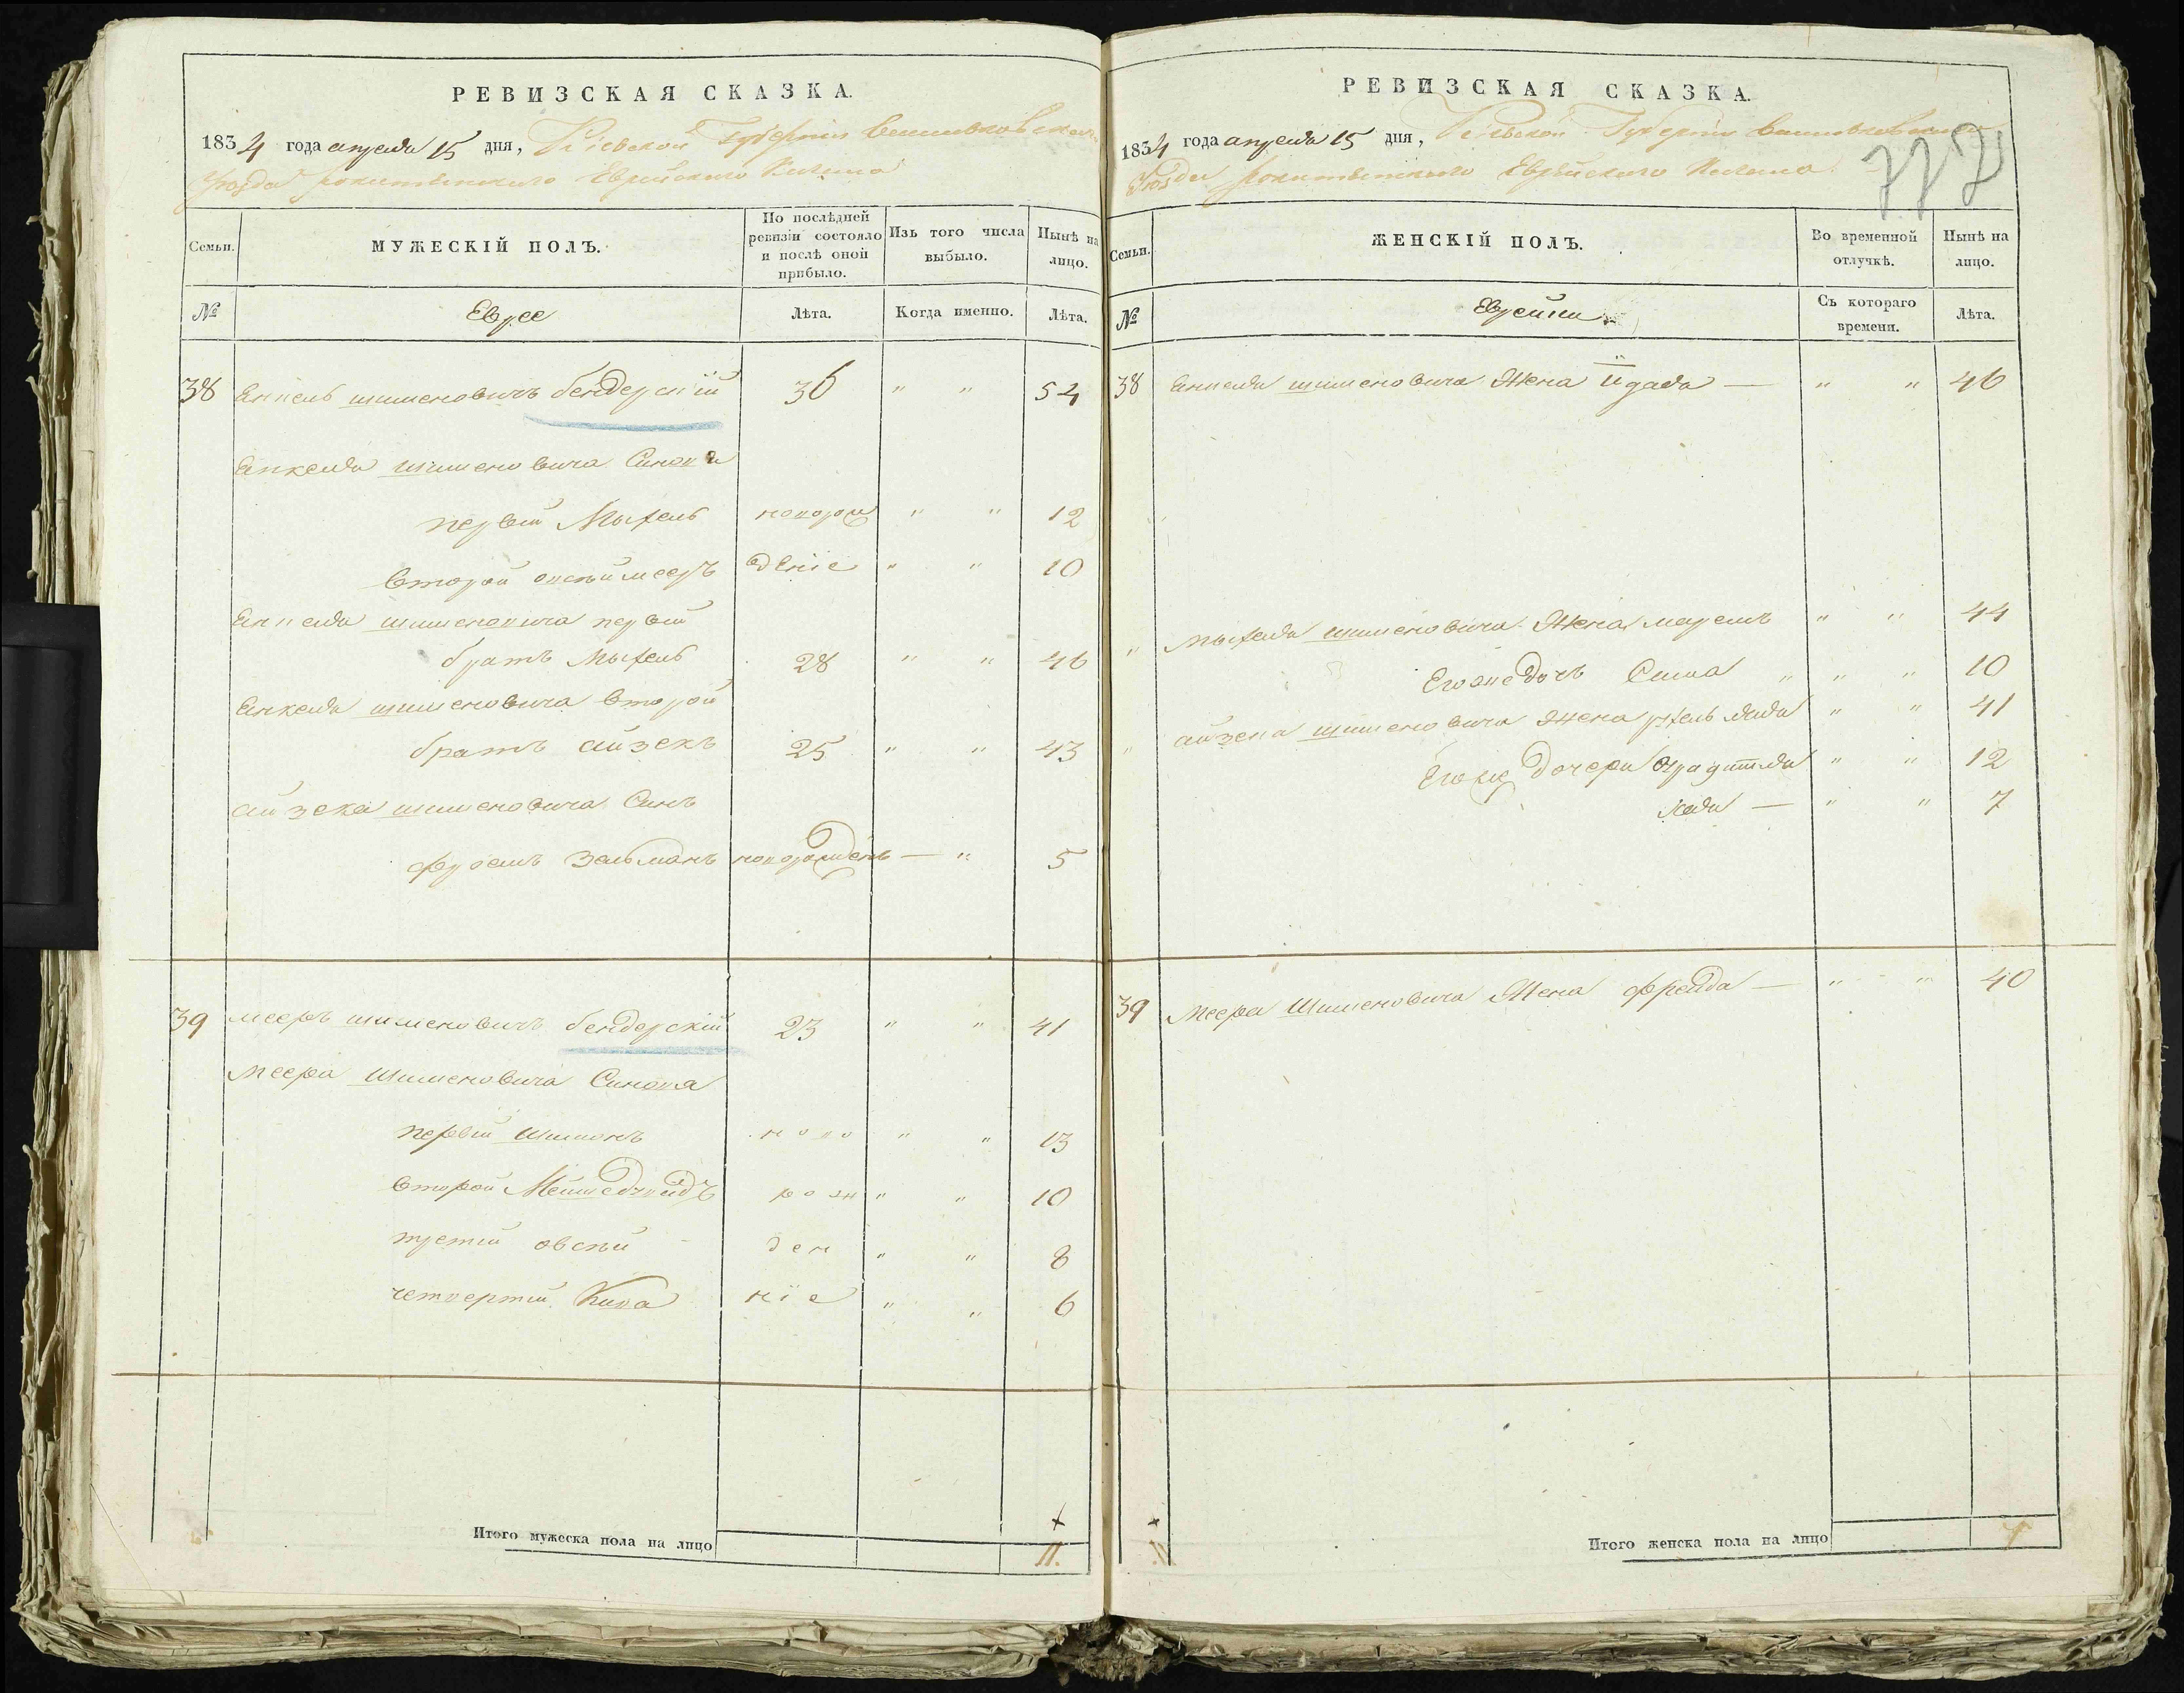 РЕВИЗСКАЯ СКАЗКА.
1834 года апреля 15 дня, Кіевской Губерніи Васильковскаго
Уезда рокитянскаго Еврейскаго Кагала
Семьи. МУЖЕСКІЙ ПОЛЪ. По послѣдней ревизіи состояло и послѣ оной прибыло. Изъ того числа выбыло. Нынѣ на лицо.
№ Еврее Лѣта. Когда именно. Лѣта.
38 Янкель шименовичъ бендерскій 36 " " 54
Янкеля шименовича Синовя
первій Мыхель новорож " " 12
второй мееръ деніе " " 10
Янкеля шименовича первій
братъ Мыхель 28 " " 46
Янкеля шименовича второй
братъ айзекъ 25 " " 43
айзека шименовича Синъ
фроемъ Зельманъ новорожденъ — " 5
39 мееръ шименовичъ бендерскій 23 " " 41
Меера Шименовича Синовя
первій Шимонъ ново " " 13
второй рож " " 10
третій овсѣй ден " " 8
четвертій Кива ніе " " 6
Итого мужеска пола на лицо 11.
РЕВИЗСКАЯ СКАЗКА.
1834 года апреля 15 дня, Кіевской Губерніи Васильковскаго
Уезда рокитянскаго Еврейскаго Кагала.
Семьи. ЖЕНСКІЙ ПОЛЪ. Во временной отлучкѣ. Нынѣ на лицо.
№ Еврейки Съ котораго времени. Лѣта.
38 Янкеля шименовича Жена — " " 46
" Мыхеля шименовича Жена маремъ " " 44
Егоже дочъ Сима " " " 10
" айзека шименовича Жена рухель ляля " " 41
Егоже дочери " " 12
хая — " " 7
39 Меера Шименовича Жена фрейда — " " 40
Итого женска пола на лицо 7